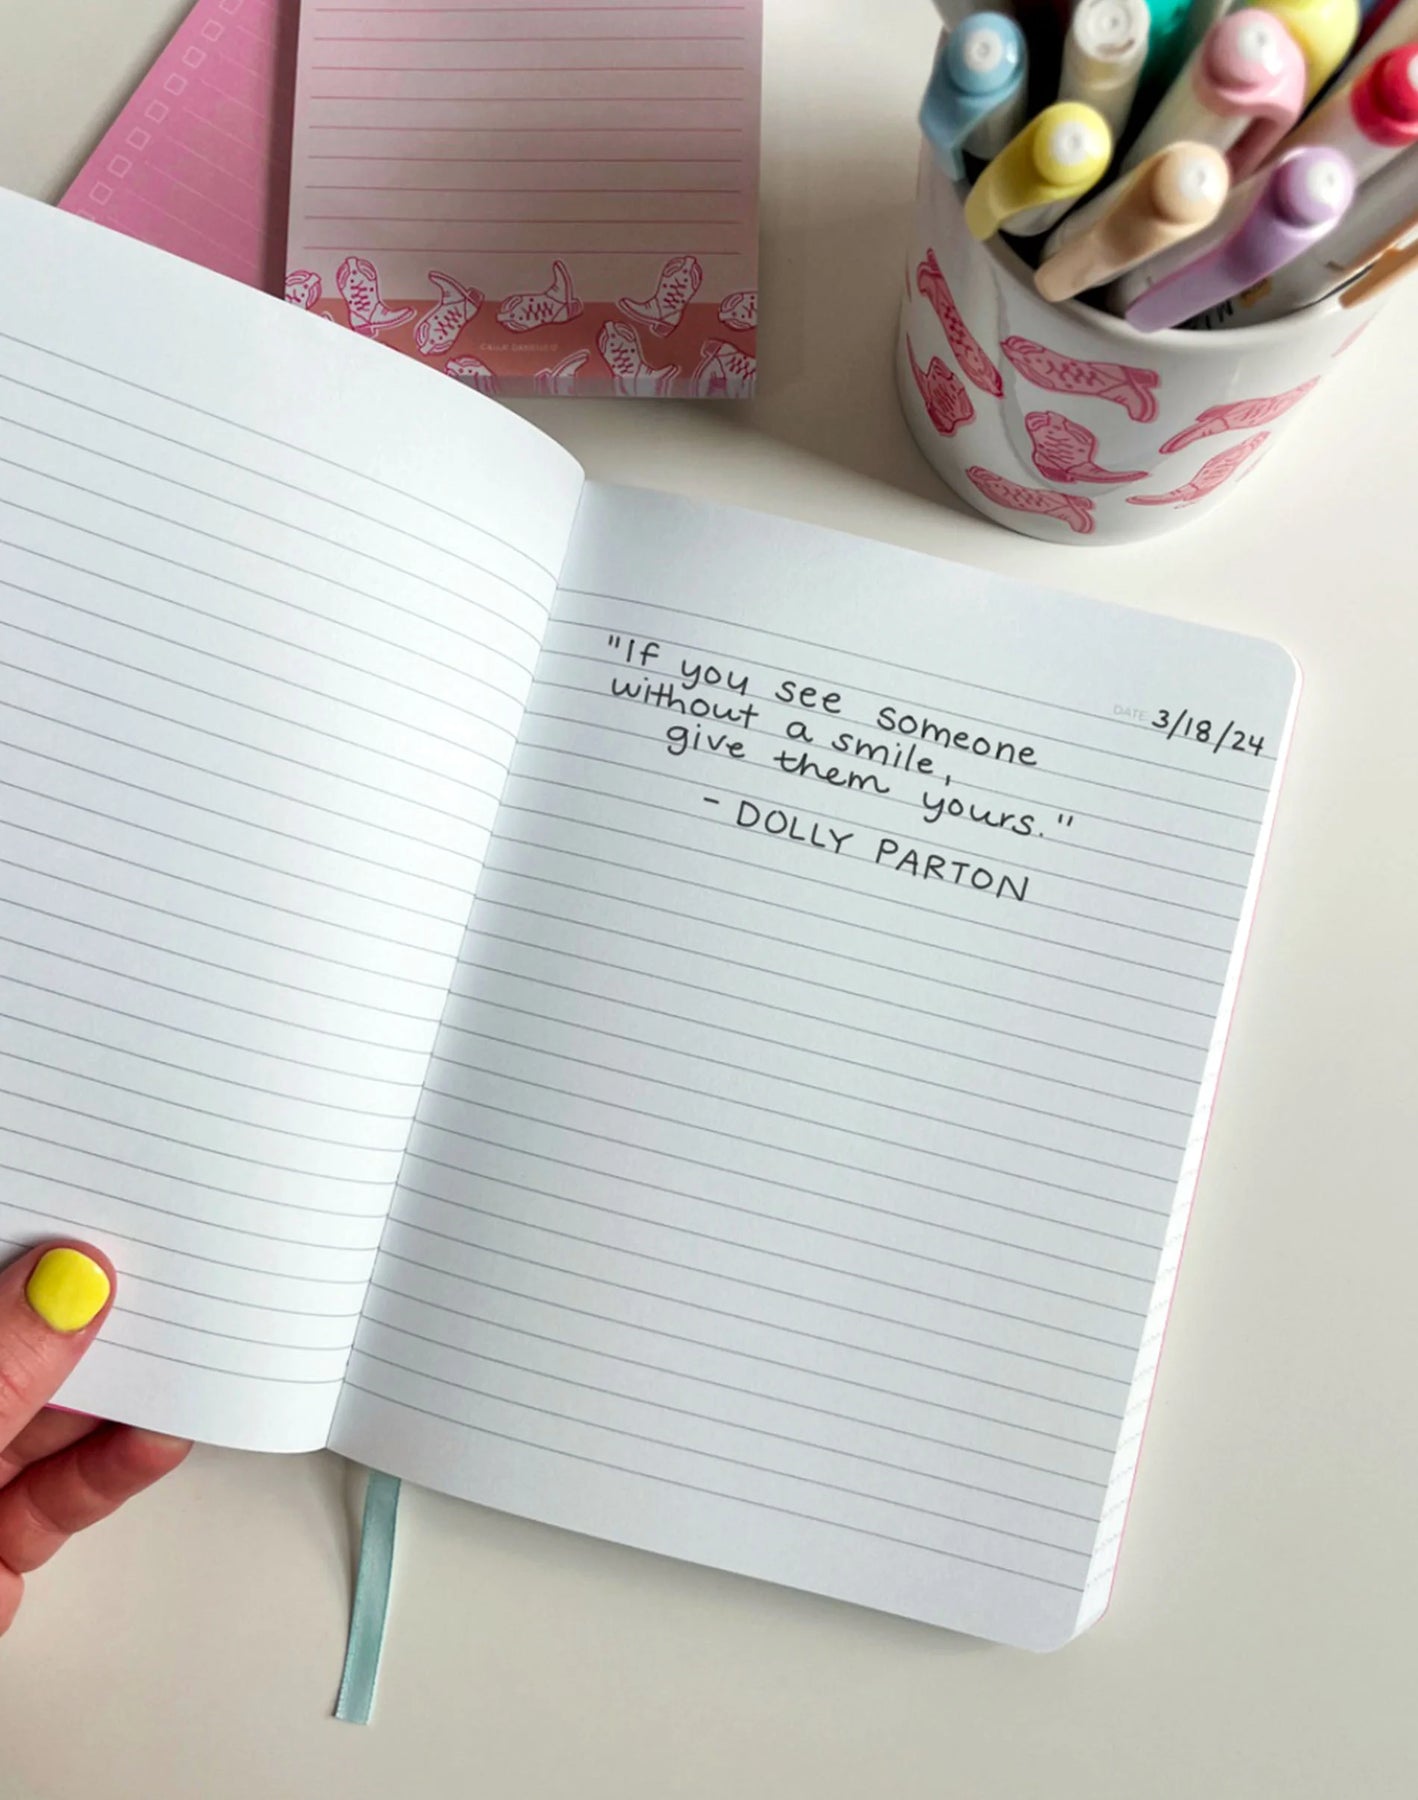 "If you see someone
without a smile,
give them yours."
- DOLLY PARTON
DATE 3/18/24